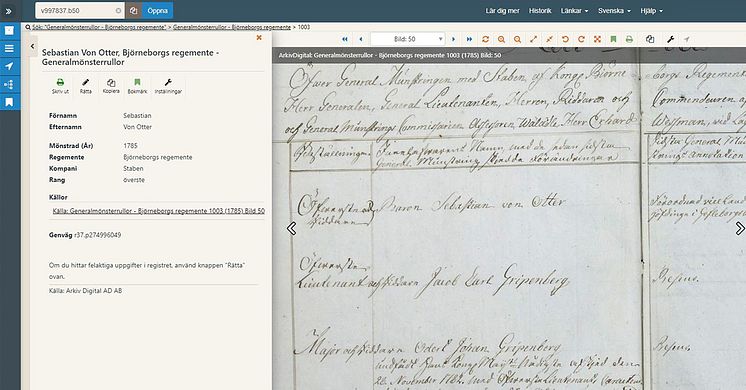 v997837.b50
Öppna
Lär dig mer
Historik
Länkar
Svenska
Hjälp
Sök: "Generalmönsterrullor - Björneborgs regemente" > Generalmönsterrullor - Björneborgs regemente > 1003
Sebastian Von Otter, Björneborgs regemente -
Generalmönsterrullor
Skriv ut
Rätta
Kopiera
Bokmärk
Inställningar
Förnamn Sebastian
Efternamn Von Otter
Mönstrad (År) 1785
Regemente Björneborgs regemente
Kompani Staben
Rang överste
Källor
Källa: Generalmönsterrullor - Björneborgs regemente 1003 (1785) Bild 50
Genväg r37.p274996049
Om du hittar felaktiga uppgifter i registret, använd knappen "Rätta"
ovan.
Källa: Arkiv Digital AD AB
Bild: 50
ArkivDigital: Generalmönsterrullor - Björneborgs regemente 1003 (1785) Bild: 50
Öfwer General Mönstringen med Staben af Kongl. Björne
borgs Regemente
Herr Generalen, General Lieutenanten, Herren, Riddaren och
Commendeuren af
och General Mönstrings Commissarien Assessoren Wälädle Herr Erhard
Wessman, vid
Innehafvarens Namn, med de sedan sidsta
General Mönstring skjedde förändringar
Sidsta General Mön
strings Annotation
Öfversten och
Riddaren
Baron Sebastian von Otter
Öfverste
Lieutenant och Riddare Jacob Carl Gripenberg
Major och Riddare Odert Johan Gripenberg
26 November 1782 med